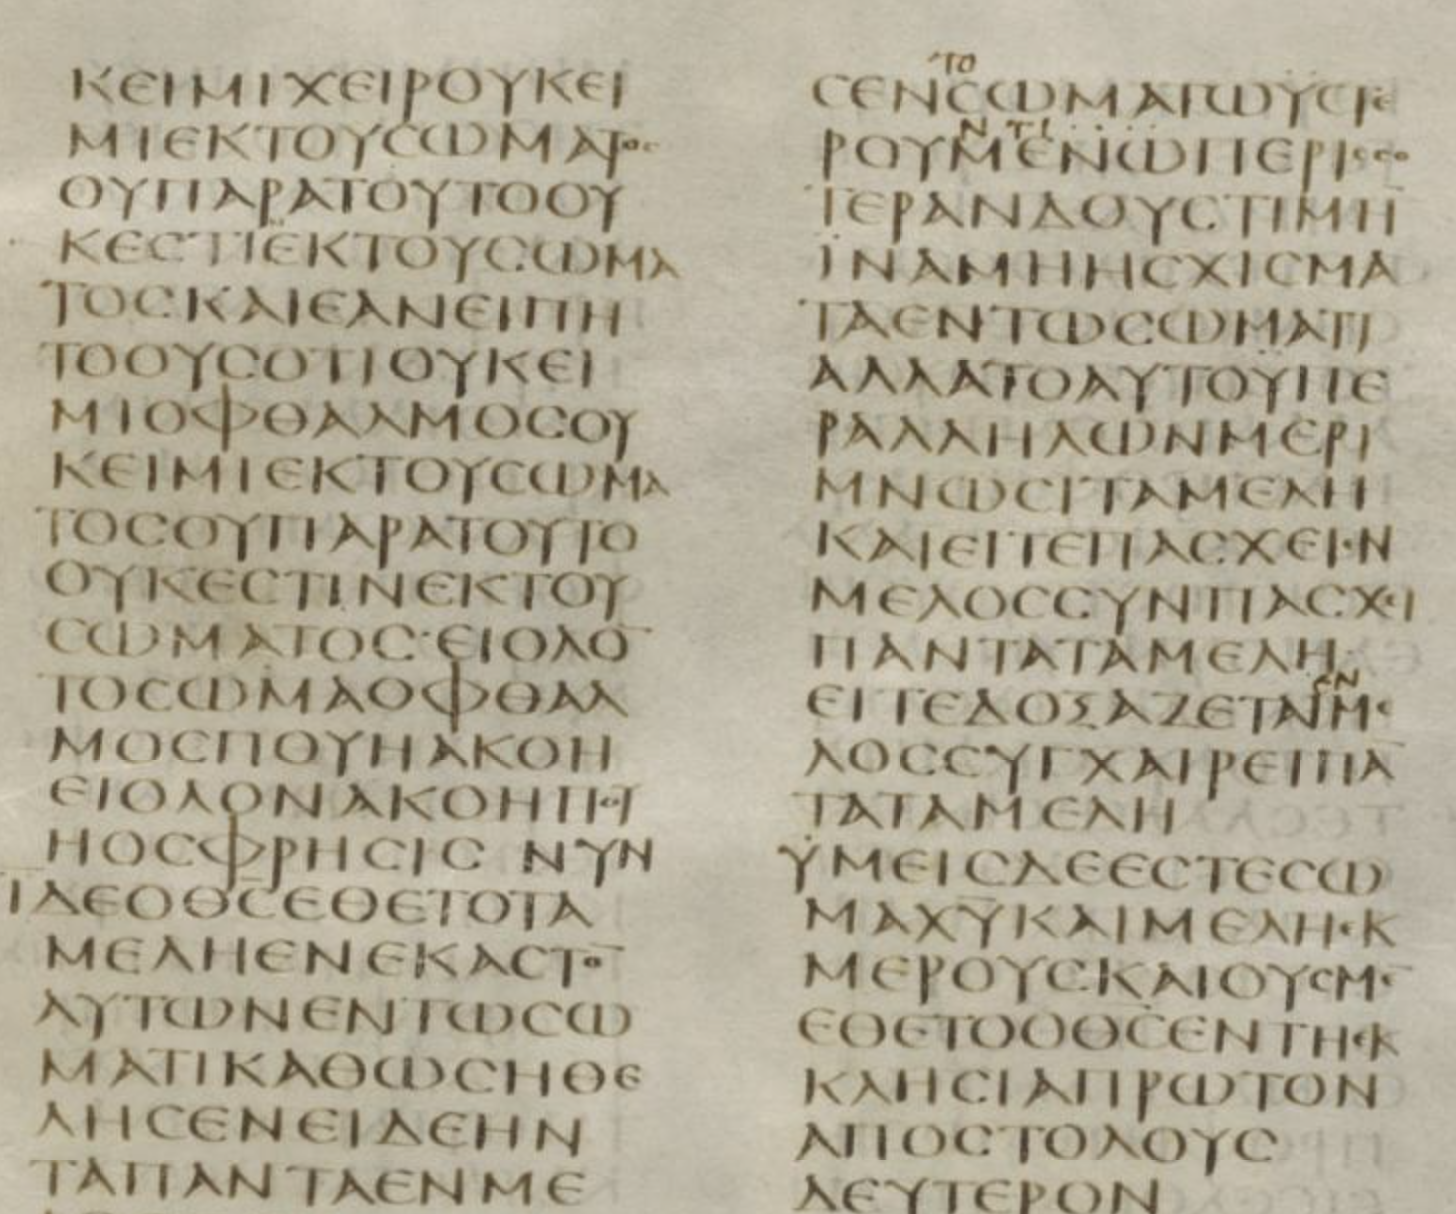 ΚΕΙΜΙΧΕΙΡΟΥΚΕΙ
ΜΙΕΚΤΟΥϹΩΜΑΤΟϹ
ΟΥΠΑΡΑΤΟΥΤΟΟΥ
ΚΕϹΤΙΕΚΤΟΥϹΩΜΑ
ΤΟϹΚΑΙΕΑΝΕΙΠΗ
ΤΟΟΥϹΟΤΙΟΥΚΕΙ
ΜΙΟΦΘΑΛΜΟϹΟΥ
ΚΕΙΜΙΕΚΤΟΥϹΩΜΑ
ΤΟϹΟΥΠΑΡΑΤΟΥΤΟ
ΟΥΚΕϹΤΙΝΕΚΤΟΥ
ϹΩΜΑΤΟϹ·ΕΙΟΛΟ̅
ΤΟϹΩΜΑΟΦΘΑΛ
ΜΟϹΠΟΥΗΑΚΟΗ
ΕΙΟΛΟΝΑΚΟΗΠΟΥ
ΗΟϹΦΡΗϹΙϹ ΝΥΝ
ΔΕΟΘ̅Ϲ̅ΕΘΕΤΟΤΑ
ΜΕΛΗΕΝΕΚΑϹΤΟ̅
ΑΥΤΩΝΕΝΤΩϹΩ
ΜΑΤΙΚΑΘΩϹΗΘΕ
ΛΗϹΕΝΕΙΔΕΗΝ
ΤΑΠΑΝΤΑΕΝΜΕ
ΤΟ
ϹΕΝϹΩΜΑΤΩΥϹΤΕ
Ν ΤΙ
ΡΟΥΜΕΝΩΠΕΡΙϹϹΟ
ΤΕΡΑΝΔΟΥϹΤΙΜΗ̅
ΪΝΑΜΗΗϹΧΙϹΜΑ
ΤΑΕΝΤΩϹΩΜΑΤΙ
ΑΛΛΑΤΟΑΥΤΟΫΠΕ
ΡΑΛΛΗΛΩΝΜΕΡΙ
ΜΝΩϹΙΤΑΜΕΛΗ
ΚΑΙΕΙΤΕΠΑϹΧΕΙΕΝ
ΜΕΛΟϹϹΥΝΠΑϹΧΕΙ
ΠΑΝΤΑΤΑΜΕΛΗ
ΕΝ
ΕΙΤΕΔΟΞΑΖΕΤΑΙΜΕ
ΛΟϹϹΥΓΧΑΙΡΕΙΠΑ̅
ΤΑΤΑΜΕΛΗ
ΫΜΕΙϹΔΕΕϹΤΕϹΩ
ΜΑΧ̅Υ̅ΚΑΙΜΕΛΗΕΚ
ΜΕΡΟΥϹΚΑΙΟΥϹΜΕ̅
ΕΘΕΤΟΟΘ̅Ϲ̅ΕΝΤΗΕΚ
ΚΛΗϹΙΑΠΡΩΤΟΝ
ΑΠΟϹΤΟΛΟΥϹ
ΔΕΥΤΕΡΟΝ